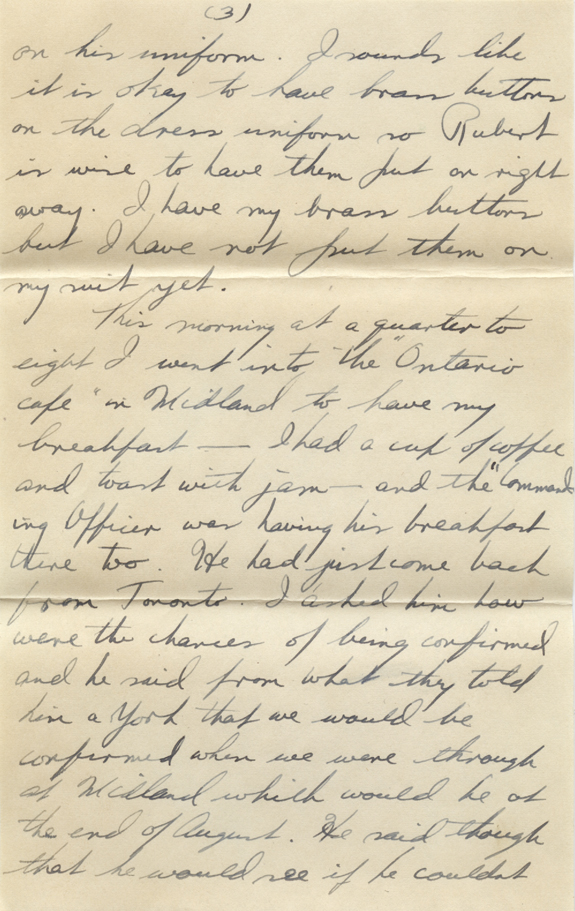 (3)
on his uniform. I sounds like
it is okay to have brass buttons
on the dress uniform so Rubert
is wise to have them put on right
away. I have my brass buttons
but I have not put them on
my suit yet.
This morning at a quarter to
eight I went into the "Ontario
cafe" in Midland to have my
breakfast — I had a cup of coffee
and toast with jam — and the "Command
ing Officer was having his breakfast
there too. He had just come back
from Toronto. I asked him how
were the chances of being confirmed
and he said from what they told
him a York that we would be
confirmed when we were through
at Midland which would be at
the end of August. He said though
that he would see if he couldnt